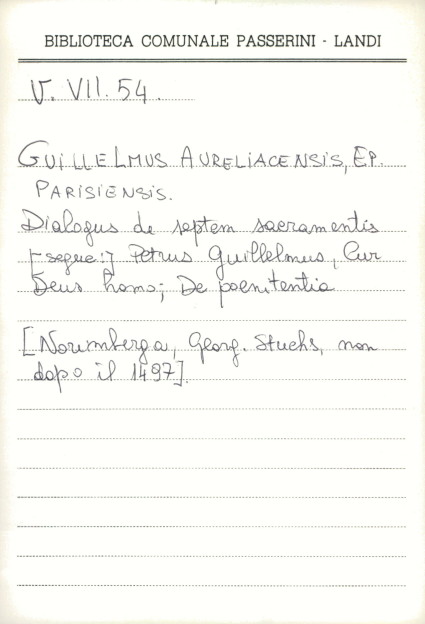 BIBLIOTECA COMUNALE PASSERINI - LANDI
V. VII. 54.
GUILLELMUS AURELIACENSIS, EP.
PARISIENSIS.
Dialogus de septem sacramentis
[segue:] Petrus Guillelmus, Cur
Deus homo; De poenitentia
[Norimberga, Georg. Stuchs, non
dopo il 1497].